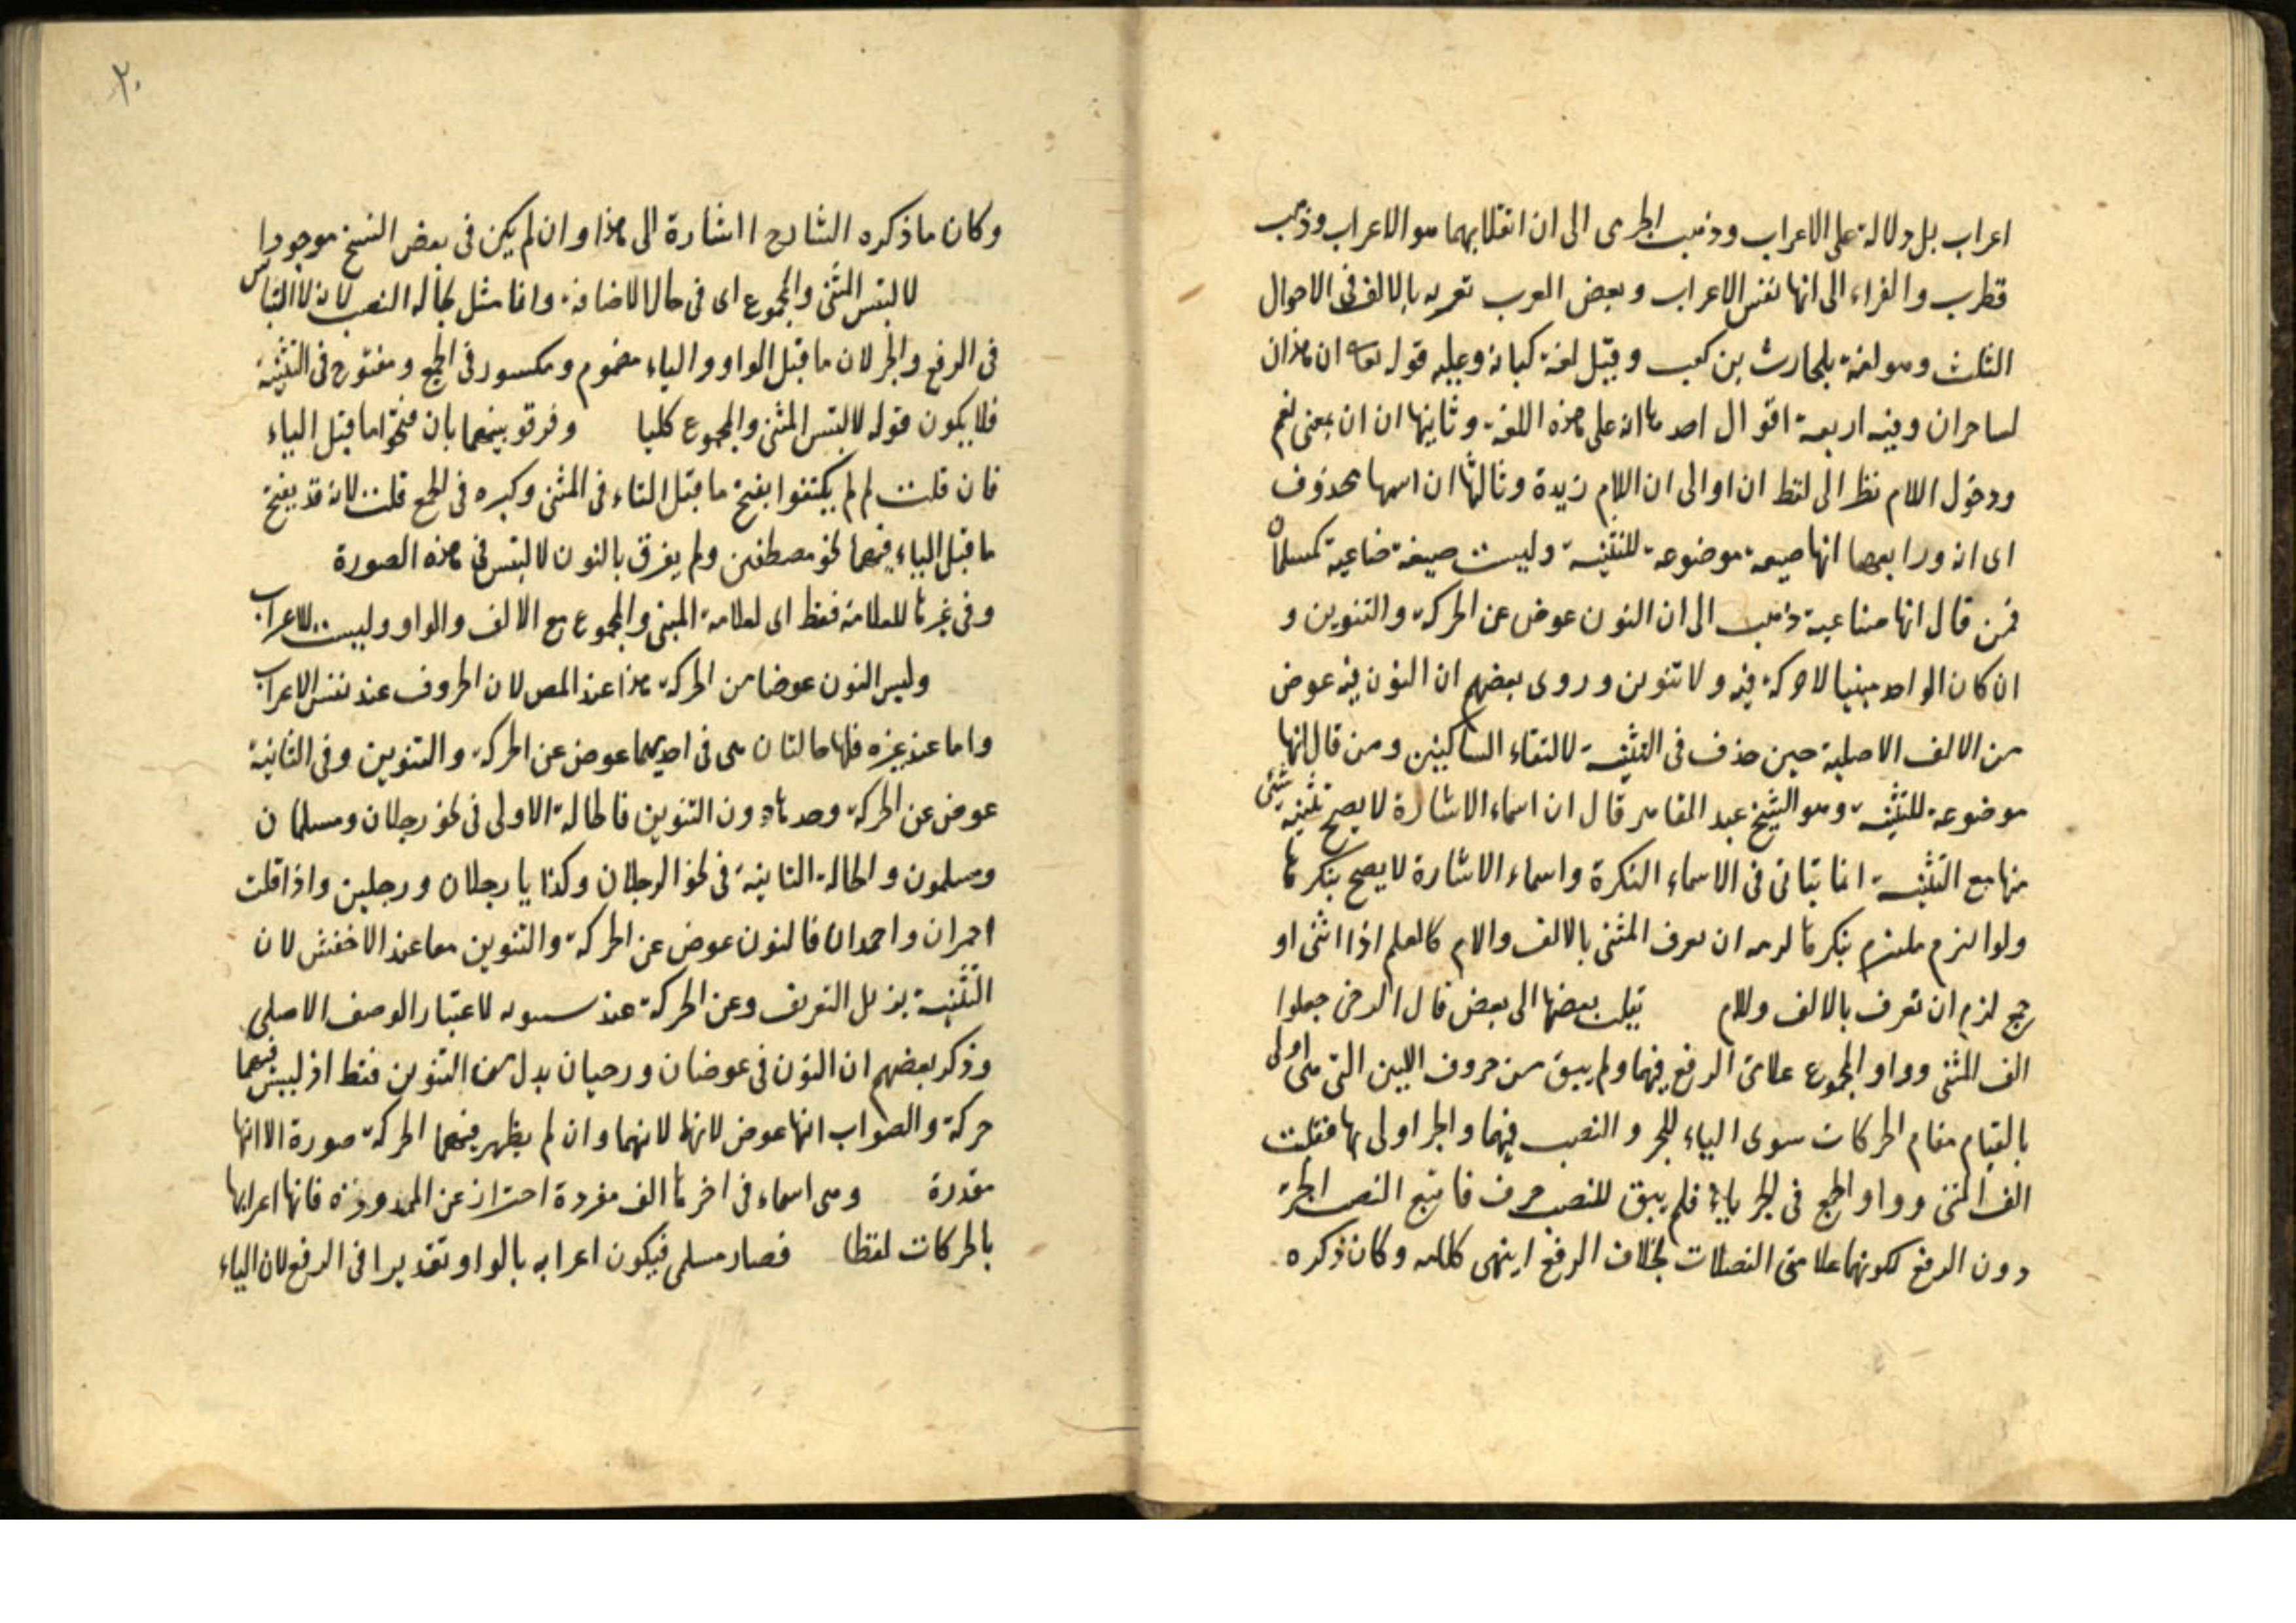 اعراب بل دلالة على الاعراب وذهب الجرمى الى ان انقلابهما هو الاعراب وذهب
قطرب والفراء الى انها نفس الاعراب وبعض العرب تعربه بالالف فى الاحوال
الثلث وهو لغة بلحارث بن كعب وقيل لغة كنانة وعليه قوله تعا ان هذان
لساحران وفيه اربعة اقوال احدها انه على هذه اللغة وثانيها ان ان بمعنى نعم
ودخول اللام نظر الى لفظ ان او الى ان اللام زيدة وثالثها ان اسمها محذوف
اى انه ورابعها انها صيغة موضوعة للتثنية وليست صيغة صناعية كمسلمان
فمن قال انها صناعية ذهب الى ان النون عوض عن الحركة والتنوين و
ان كان الواحد مبنيا لا حركة فيه ولا تنوين وروى بعضهم ان النون فيه عوض
من الالف الاصلية حين حذف فى التثنية لالتقاء الساكنين ومن قال انها
موضوعة للتثنية وهو الشيخ عبد القاهر قال ان اسماء الاشارة لا يصح تثنية شئ
منها مع التثنية انما يتاتى فى الاسماء النكرة واسماء الاشارة لا يصح تنكرها
ولو التزم ملتزم تنكرها لزمه ان يعرف المثنى بالالف والام كالعلم اذا اثنى او
جمع لزم ان تعرف بالالف ولام قبلت بعضها الى بعض قال الرضى جعلوا
الف المثنى وواو المجموع علامتى الرفع فيهما ولم يبق من حروف اللين التى هى اولى
بالقيام مقام الحركات سوى الياء للجر و النصب فيهما والجر اولى بها فقلبت
الف المثنى وواو الجمع فى الجر ياء فلم يبق للنصب حرف فاتبع النصب الجر
دون الرفع لكونهما علامتى الفضلات بخلاف الرفع انتهى كلامه وكان ذكره
٢٠
وكان ما ذكره الشارح اشارة الى هذا وان لم يكن فى بعض النسخ موجودا
لالتبس المثنى والمجموع اى فى حال الاضافة وانما مثل بحالة النصب لانه لا التباس
فى الرفع والجر لان ما قبل الواو والياء مضموم ومكسور فى الجمع ومفتوح فى التثنية
فلا يكون قوله لالتبس المثنى والمجموع كليا وفرقو بينهما بان فتحوا ما قبل الياء
فان قلت لم لم يكتفوا بفتح ما قبل الياء فى المثنى وكسره فى الجمع قلت لانه قد يفتح
ما قبل الياء فيهما نحو مصطفين ولم يفرق بالنون لالتبس فى هذه الصورة
وفى غيرها للعلامة فقط اى لعلامة المبنى والمجموع مع الالف والواو وليست للاعراب
وليس النون عوضا من الحركة هذا عند المص لان الحروف عند نفس الاعراب
واما عند غيره فلها حالتان هى فى احديهما عوض عن الحركة والتنوين وفى الثانية
عوض عن الحركة وحدها دون التنوين فالحالة الاولى فى نحو رجلان ومسلمان
ومسلمون والحالة الثانية فى نحو الرجلان وكذا يا رجلان ورجلين واذا قلت
احمران واحمدان فالنون عوض عن الحركة والتنوين معا عند الاخفش لان
التثنية يزيل التعريف وعن الحركة عند سيبويه لاعتبار الوصف الاصلى
وذكر بعضهم ان النون فى عوضان ورحيان بدل من التنوين فقط اذ ليس فيهما
حركة والصواب انها عوض لانها لانهما وان لم يظهر فيهما الحركة صورة الا انها
مقدرة وهى اسماء فى اخرها الف مفردة احتراز عن الممدودة فانها اعرابها
بالحركات لفظا فصار مسلمى فيكون اعرابه بالواو تقديرا فى الرفع لان الياء